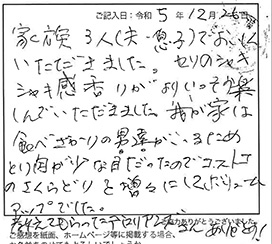 ご記入日:令和 5 年 12 月 26 日
家族3人(夫・息子)でおいしく
いただきました。セリのシャキ
シャキ感 香りがよりいっそう楽
しんでいただきました 我が家は
食べざかりの男達がいるため
とり肉が少な目だったのでコストコ
のさくらどりを増々にしてボリューム
アップでした。
教えてもらった
ありがとうございました。
ご感想を紙面、ホームページ等に掲載する場合、